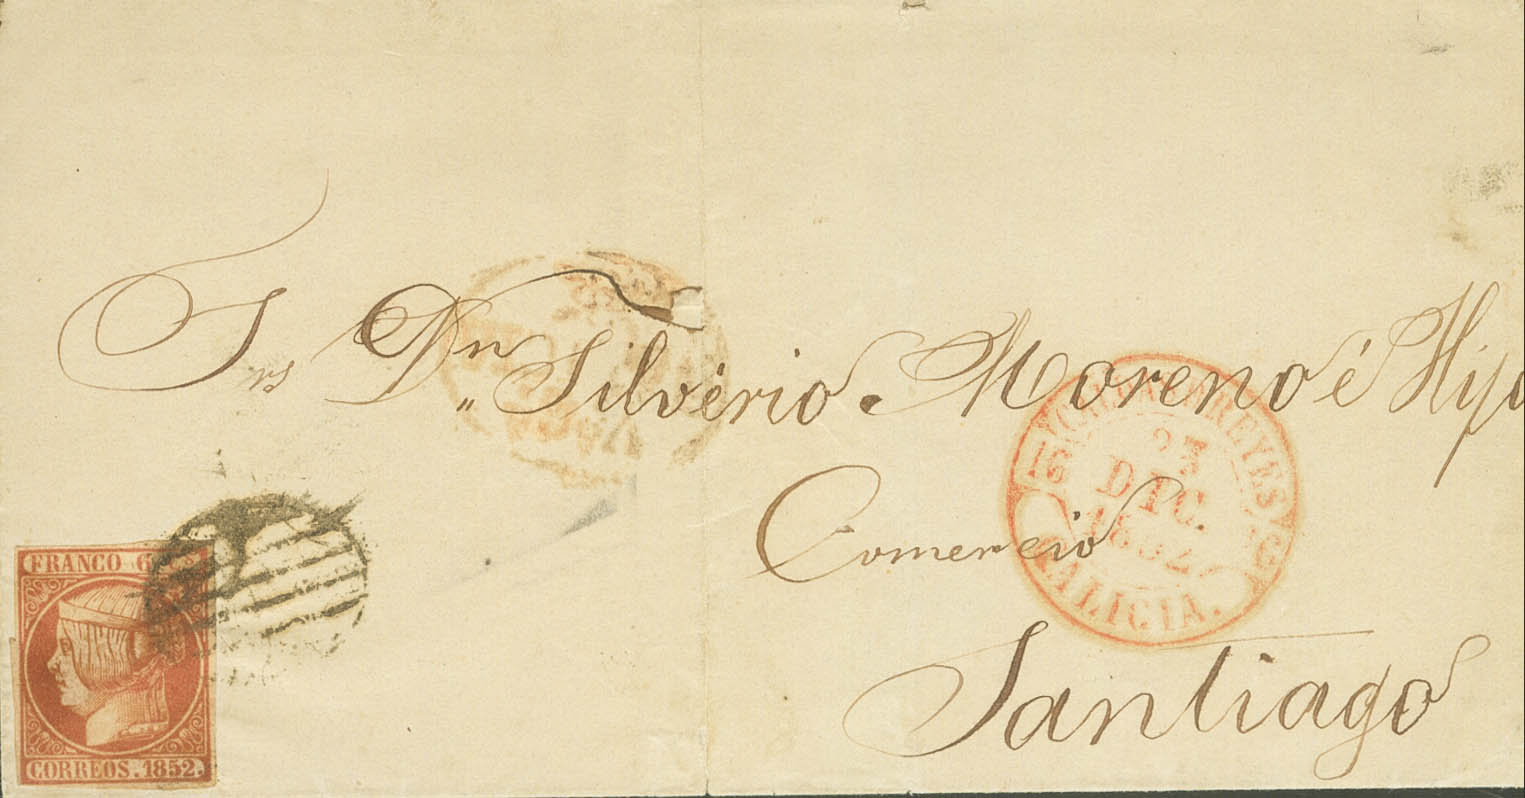 Srs Dn Silvério Moreno é Hijo
Comercio
Santiago
16
23
DIC.
1852
GALICIA.
FRANCO 6 Cs
CORREOS.1852.